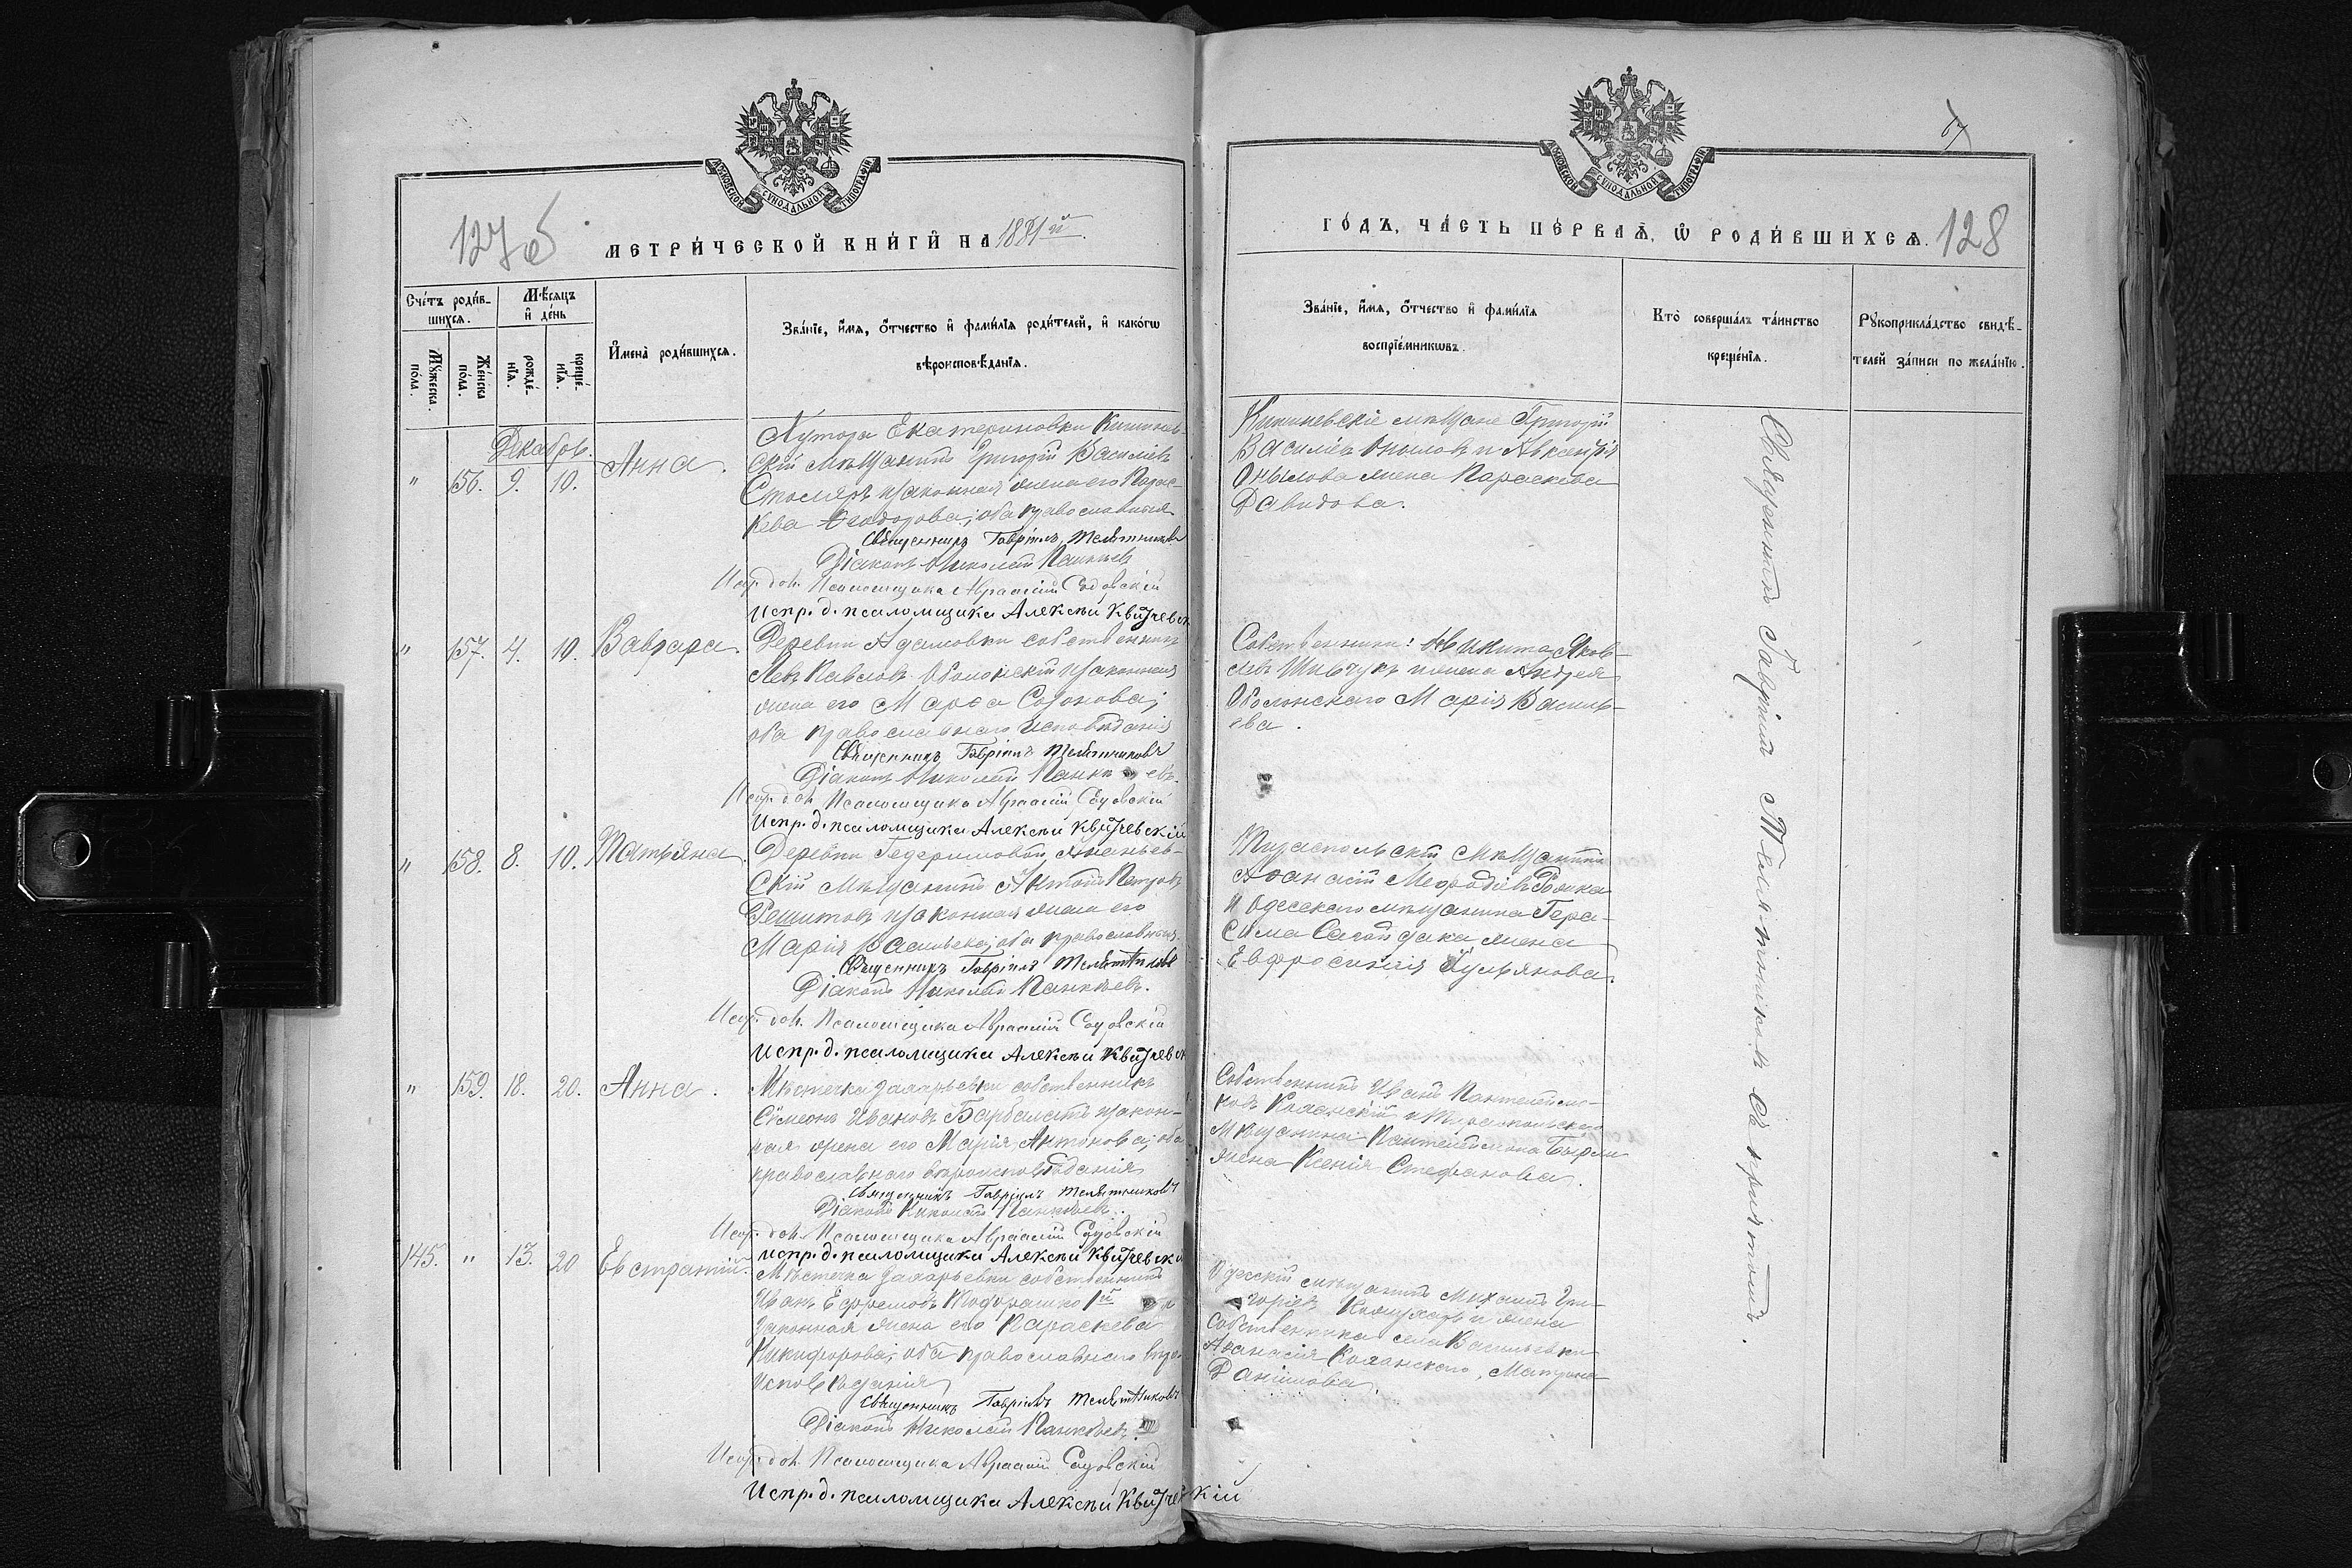 МОСКОВСКОЙ
СѴНОДАЛЬНОЙ
ТИПОГРАФІИ
127 об
МЕТРИ́ЧЕСКОЙ КНИ́ГИ НА 1881й
Сче́тъ роди́в-
шихся.
Мѣ́сяцъ
и҆ де́нь
Мꙋ́жеска
по́ла.
Же́нска
по́ла.
рожде́-
нїѧ.
креще́-
нїѧ.
И҆мена̀ роди́вшихсѧ.
Зва́нїе, и҆́мѧ, ѻ҆́тчество и҆ фами́лїѧ роди́телей, и҆ како́гѡ
вѣроисповѣ́данїѧ.
Декабрь.
" 156. 9. 10. Анна.
Хутора Екатериновки Кишинев-
скій мѣщанинъ Григорій Василіевъ
Столяръ и законная жена его Парас-
кева Ѳеодорова; оба православные
Священникъ Гавріилъ Телятниковъ
Діаконъ Николай Панкѣевъ
Испр. дол. Псаломщика Авраамій Садовскій
Испр. д. псаломщика Алексѣй Квятчевск
" 157. 4. 10. Варвара.
Деревни Адамовки собственникъ
Левъ Павловъ Оболонскій и законная
жена его Марѳа Созонова;
оба православнаго исповѣданія
Священникъ Гавріилъ Телятниковъ
Діаконъ Николай Панкѣевъ.
Испр. дол. Псаломщика Авраамій Садовскій
Испр. д. псаломщика Алексѣй Квятчевскій
" 158. 8. 10. Татьяна.
Деревни Гедеримовой, Ананьев-
скій мѣщанинъ Антонъ Петровъ
Решитовъ и законная жена его
Марія Васильева; оба православные
Священникъ Гавріилъ Телятниковъ
Діаконъ Николай Панкѣевъ.
Испр. дол. Псаломщика Авраамій Садовскій
Испр. д. псаломщика Алексѣй Квятчевск
" 159. 18. 20. Анна.
Мѣстечка Захарьевки собственникъ
Сѵмеонъ Ивановъ Барбалатъ и закон-
ная жена его Марія Антонова; оба
православнаго вѣроисповѣданія
Священникъ Гавріилъ Телятниковъ
Діаконъ Николай Панкѣевъ.
Испр. дол. Псаломщика Авраамій Садовскій
Испр. д. псаломщика Алексѣй Квятчевскі
145. " 13. 20 Евстратій.
Мѣстечка Захарьевки собственникъ
Иванъ Ефремовъ Тодорашко 1й
законная жена его Параскева
Никифорова; оба православнаго вѣро-
исповѣданія
Священникъ Гавріилъ Телятниковъ
Діаконъ Николай Панкѣевъ.
Испр. дол. Псаломщика Авраамій Садовскій
Испр. д. псаломщика Алексѣй Квятчевскій
МОСКОВСКОЙ
СѴНОДАЛЬНОЙ
ТИПОГРАФІИ
ГО́ДЪ, ЧА́СТЬ ПЕ́РВАѦ, Ѡ҆ РОДИ́ВШИХСѦ. 128
Зва́нїе, и҆́мѧ, ѻ҆́тчество и҆ фами́лїѧ
воспрїе́мникѡвъ.
Кто̀ соверша́лъ та́инство
креще́нїѧ.
Рꙋкоприкла́дство свидѣ́-
телей за́писи по жела́нїю.
Кишиневскіе мѣщане Григорій
Василіевъ и
жена Параскева
Давидова.
Собственники: Никита Яков-
левъ Шевчукъ и жена Андрея
Оболонскаго Марія Василь-
ева.
Тираспольскій мѣщанинъ
Аѳанасій
и Одесскаго мѣщанина Гера-
сима жена
Евфросинія Лукьянова.
Собственникъ Иванъ Пантелеймо-
новъ и Тираспольскаго
мѣщанина Пантелеймона
жена Ксенія Стефанова.
Одесскій мѣщанинъ Михаилъ Гри-
горіевъ и жена
собственника села Васильевки
Аѳанасія Матрона
Даніилова.
Священникъ Гавріилъ Телятниковъ съ причтомъ.